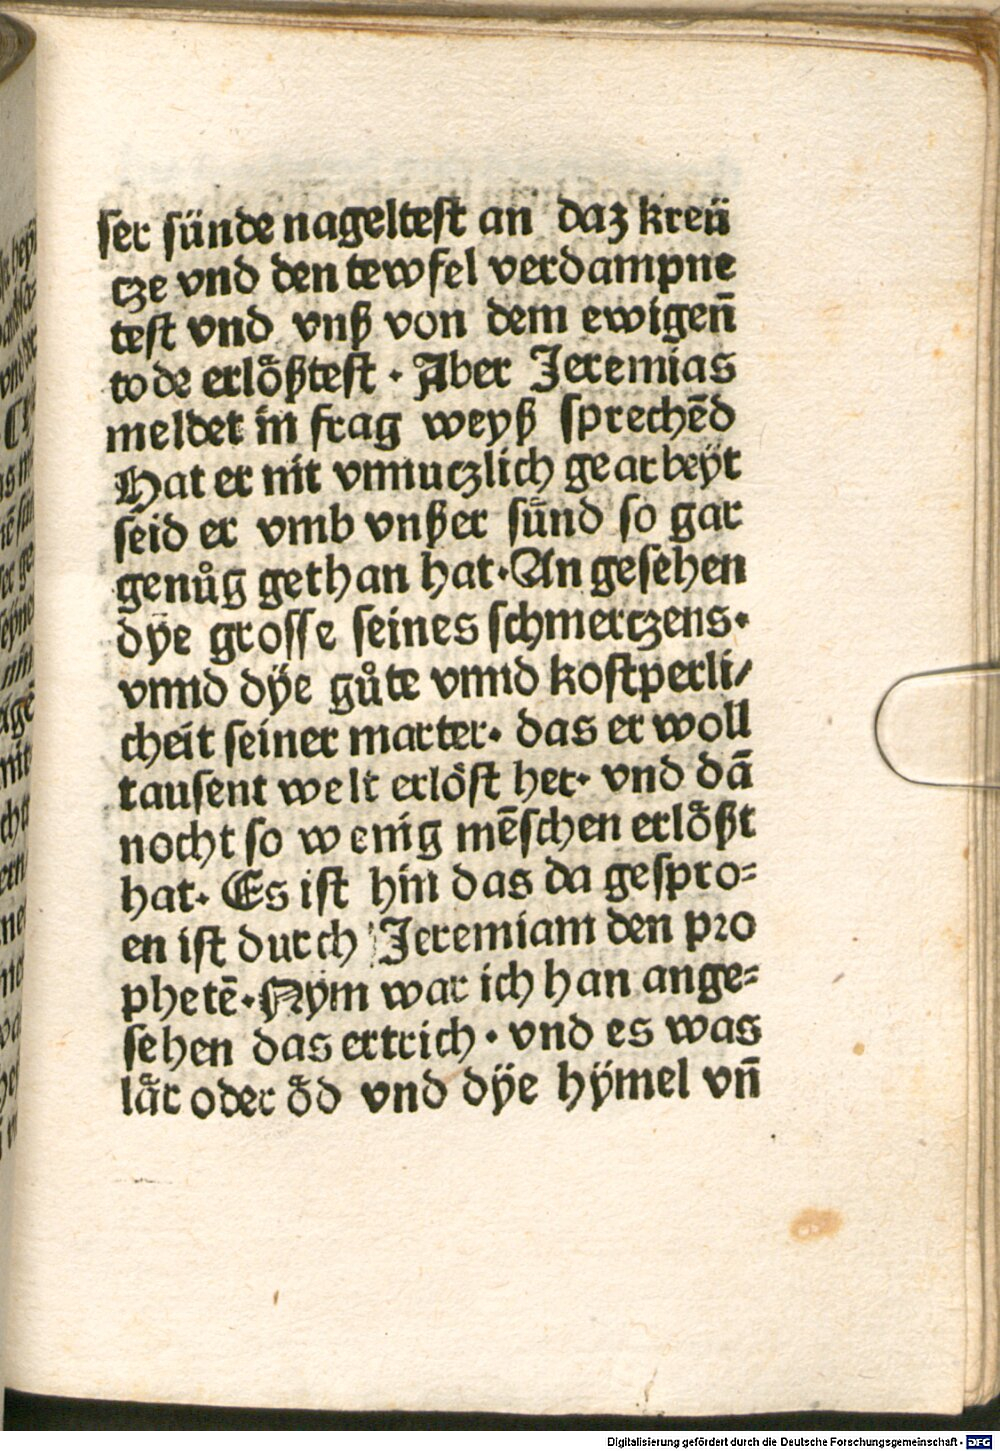 ser sünde nageltest an daz kreü
tze vnd den tewfel verdampne
test vnd vnß von dem ewigen̄
tode erlößtest · Aber Jeremias
meldet in frag weyß sprechēd
Hat er nit vnnutzlich gearbeÿt
seid er vmb vnßer sünd so gar
genůg gethan hat · An gesehen
dÿe grosse seines schmertzens ·
vnnd dÿe gůte vnnd kostperli/
cheit seiner marter · das er woll
tausent welt erlöst het · vnd dā
nocht so wenig mēschen erlößt
hat · Es ist hin das da gespro=
en ist durch Jeremiam den pro
phetē · Nym war ich han ange=
sehen das ertrich · vnd es was
lår oder öd vnd dÿe hÿmel vn̄
Digitalisierung gefördert durch die Deutsche Forschungsgemeinschaft - DFG